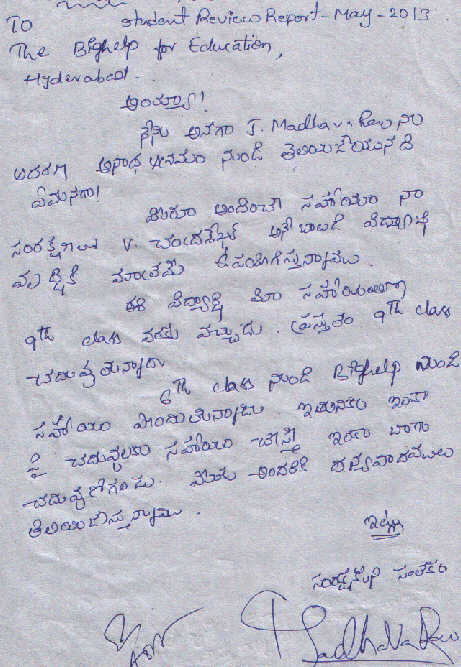 To Student Review Report - May - 2013
The Bighelp for Education,
Hyderabad.
అయ్యా!
నేను అనగా J. Madhava Rao నం
నుండి తెలియజేయునది
ఏమనగా!
మీరు అందించే సహాయం నా
V. చంద్రశేఖర్ అనే బాలుడి విద్యాభి
వృద్ధికి మాత్రమే ఉపయోగిస్తున్నాము.
ఈ విద్యార్థి మీ సహాయంతో
9th class వరకు వచ్చాడు. ప్రస్తుతం 9th class
చదువుతున్నాడు
6th class నుండి Bighelp నుండి
సహాయం పొందుతున్నాడు. ఇతనికి ఇంకా
పై చదువులకు సహాయం చేస్తే ఇంకా బాగా
చదువుకోగలడు. మీకు అందరికి ధన్యవాదములు
తెలియజేస్తున్నాము.
ఇట్లు
సంరక్షకుని సంతకం
Madhava Rao